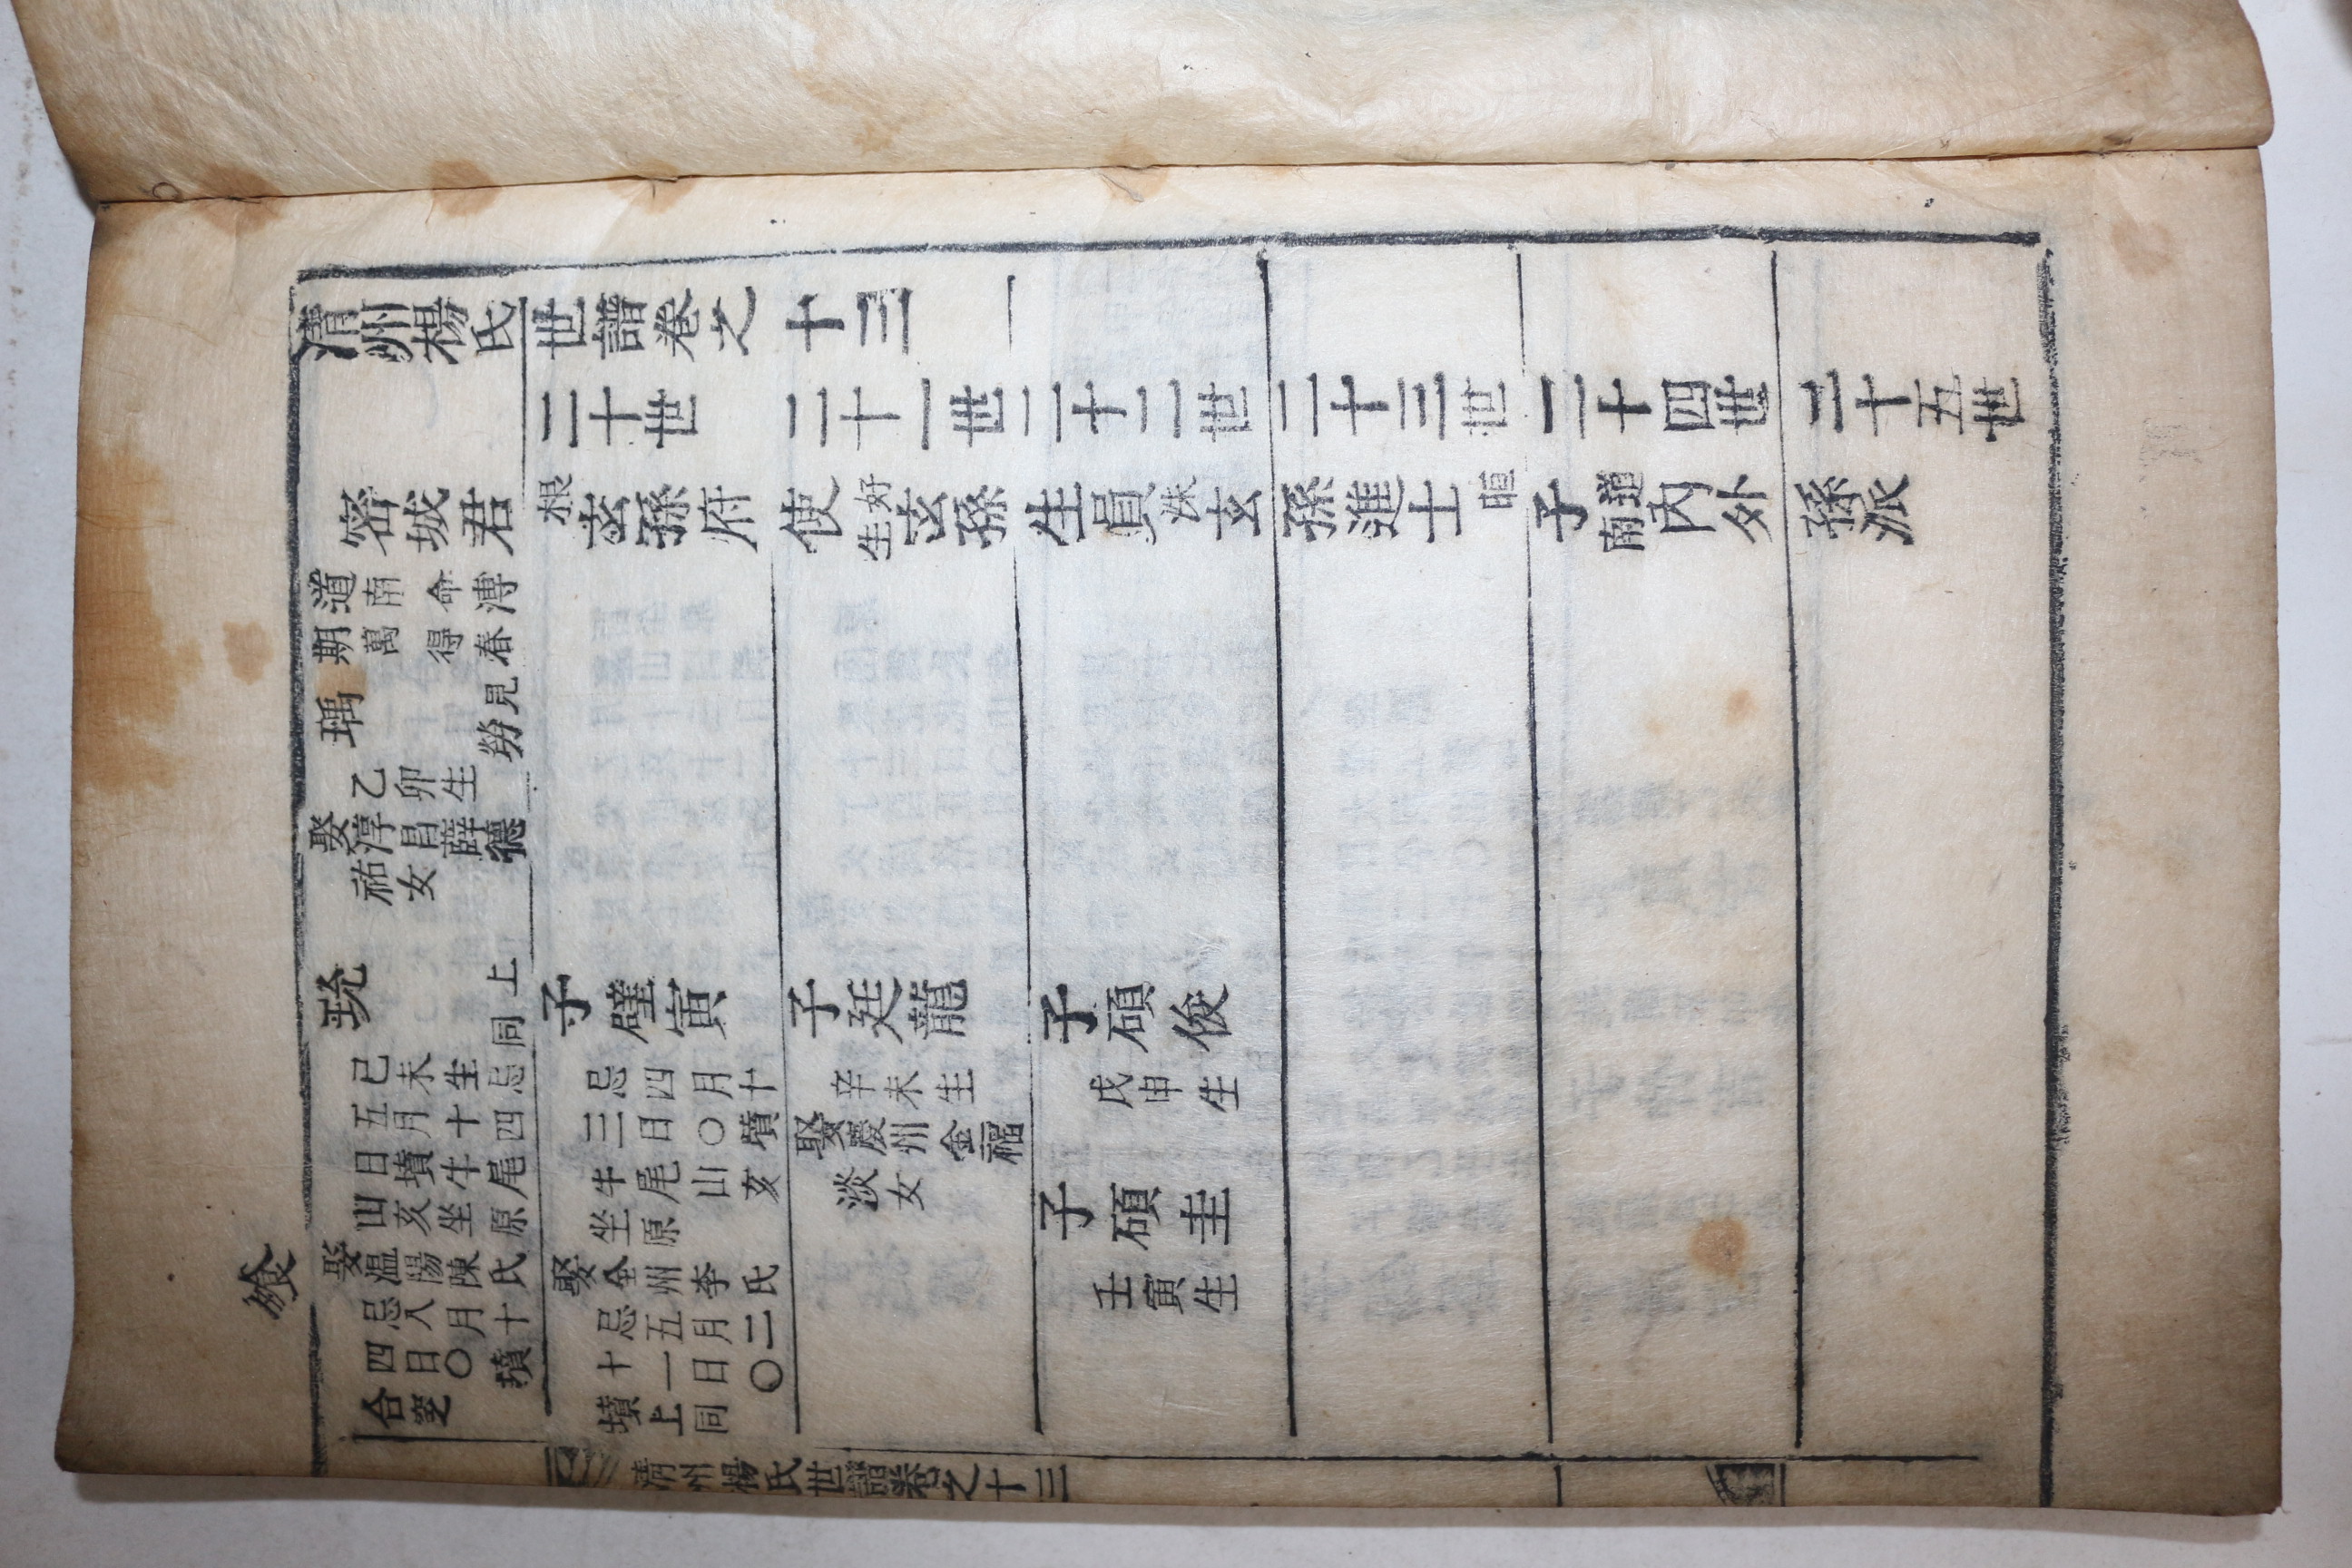 清州楊氏世譜卷之十三
二十世
二十一世
二十二世
二十三世
二十四世
二十五世
密城君根玄孫府使好生玄孫生員洙玄孫進士晅子道南內外孫派
道南 命溥
期萬 得春
瑀
見
勞
乙卯生
娶淳昌薛德
祐女
珗
上
同
己未生忌
五月十四
日墳牛尾
山亥坐原
娶温陽陳氏
忌八月十
四日〇墳
合窆
子璧寅
忌四月十
三日〇墳
牛尾山亥
坐原
娶全州李氏
忌五月二
十一日〇
墳上同
子廷龍
辛未生
娶慶州金福
淡女
子碩俊
戊申生
子碩圭
壬寅生
飧
清州楊氏世譜卷之十三
一